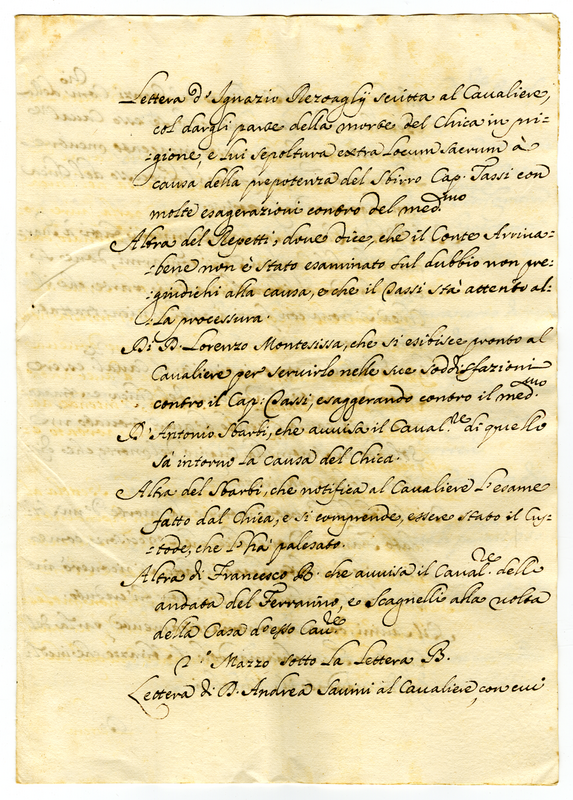 Lettera d' Ignazio Rezoaglij scritta al Cavaliere,
col dargli parte della morte del Chica in pri-
-gione, e lui sepoltura extra Locum Sacrum à
causa della prepotenza del Sbirro Cap. Tassi con
molte esagerazioni contro del med.mo
Altra del Repetti, doue dice, che il Conte Arriua-
-bene non è stato esaminato sul dubbio non pre-
-giudichi alla causa, e che il Tassi stà attento al-
-la processura.
Di D. Lorenzo Montesissa, che si esibisce pronto al
Cavaliere per servirlo nelle sue soddisfazioni
contro il Cap: Tassi, esaggerando contro il med.mo
D' Antonio Sbarbi, che auuisa il Caual.re di quello
sà intorno la causa del Chica.
Altra del Sbarbi, che notifica al Cavaliere l'esame
fatto dal Chica, e si comprende, essere stato il Cus-
-tode, che l'hà palesato.
Altra di Francesco B. che auuisa il Caual.re della
andata del Ferranino, e Scagnelli alla uolta
della Casa d'esso Cau.re
2.° Mazzo sotto la Lettera B.
Lettera di D. Andrea Sauini al Cavaliere, con cui